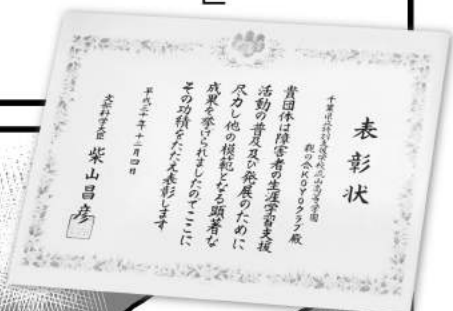 表彰状
千葉県立特別支援学校流山高等学園
親の会KOYOクラブ殿
貴団体は障害者の生涯学習支援
活動の普及及び発展のために
尽力し他の模範となる顕著な
成果を挙げられましたのでここに
その功績をたたえ表彰します
平成三十年十二月四日
文部科学大臣 柴山昌彦